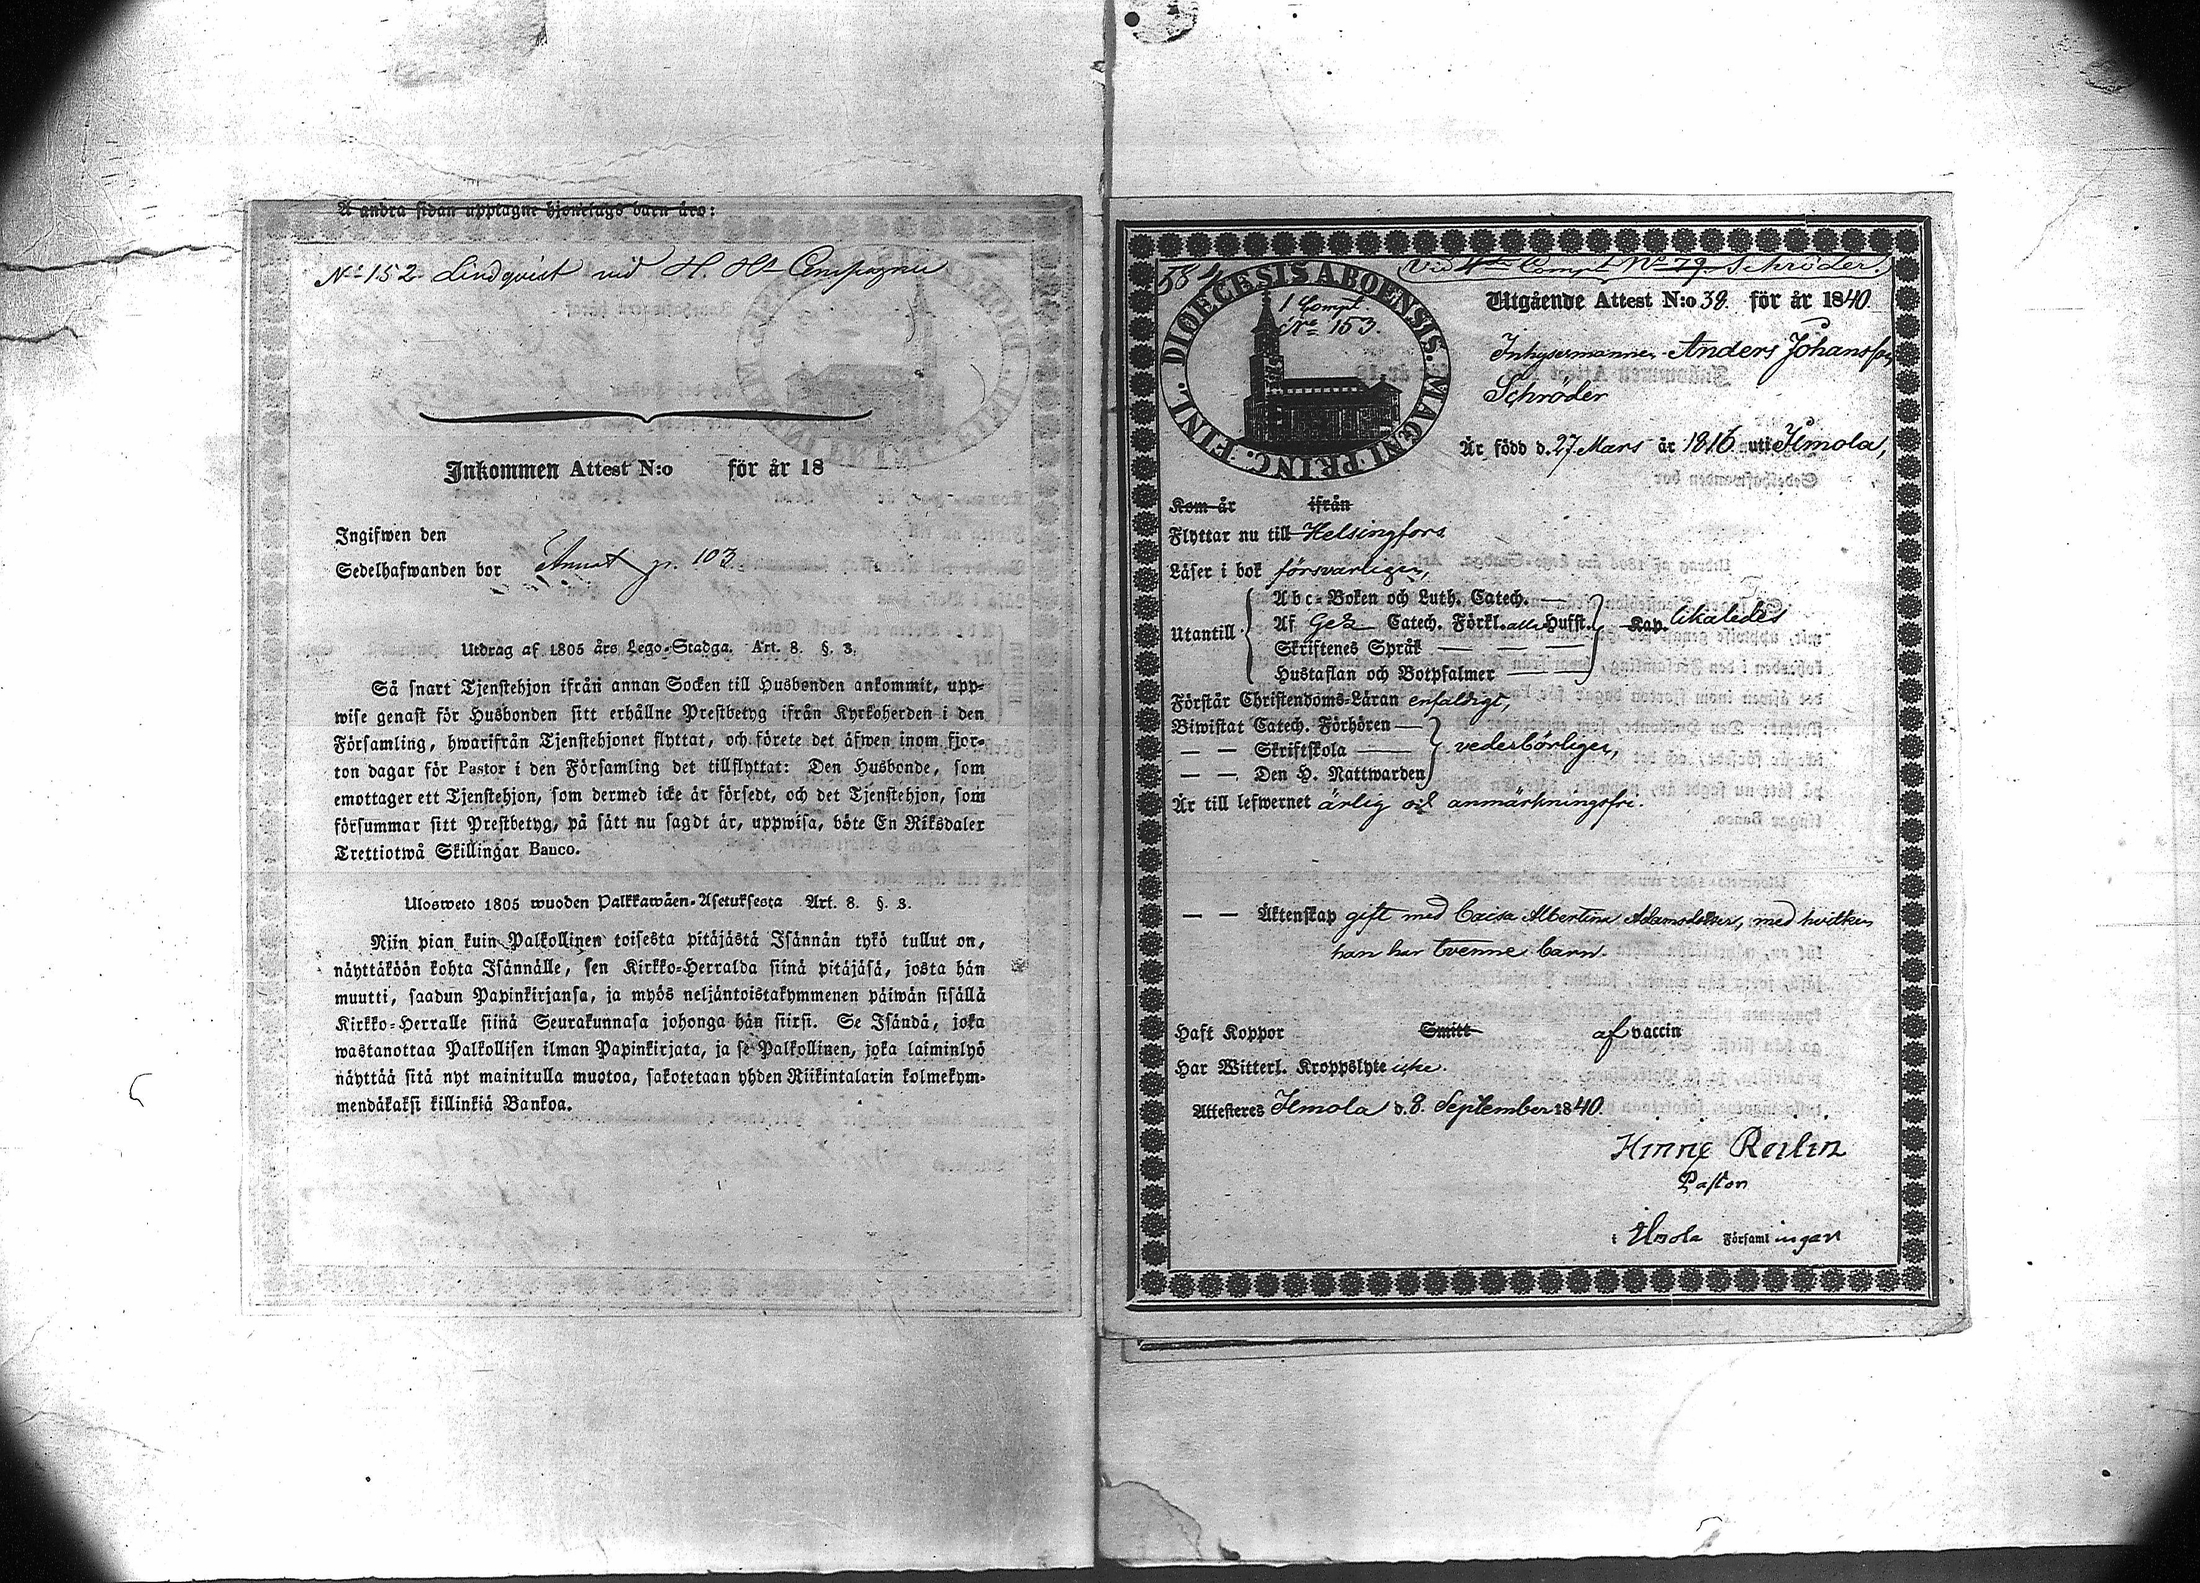 Å andra sidan upptagne hjonelags barn äro:
No 152 Lindqvist vid H. Compagnie
Inkommen Attest N:o för år 18
Ingifwen den
Sedelhafwanden bor 103
Utdrag af 1805 års Lego-Stadga. Art. 8. §. 3.
Så snart Tjenstehjon ifrån annan Socken till Husbonden ankommit, upp-
wise genast för Husbonden sitt erhållne Prestbetyg ifrån Kyrkoherden i den
Församling, hwarifrån Tjenstehjonet flyttat, och förete det äfwen inom fjor-
ton dagar för Pastor i den Församling det tillflyttat: Den Husbonde, som
emottager ett Tjenstehjon, som dermed icke är försedt, och det Tjenstehjon, som
försummar sitt Prestbetyg, på sätt nu sagdt är, uppwisa, böte En Riksdaler
Trettiotwå Skillingar Banco.
Ulosweto 1805 wuoden Palkkawäen-Asetuksesta Art. 8. §. 3.
Niin pian kuin Palkollinen toisesta pitäjästä Isännän tykö tullut on,
näyttäköön kohta Isännälle, sen Kirkko-Herralda siinä pitäjäsä, josta hän
muutti, saadun Papinkirjansa, ja myös neljäntoistakymmenen päiwän sisällä
Kirkko-Herralle siinä Seurakunnasa johonga hän siirsi. Se Isändä, joka
wastanottaa Palkollisen ilman Papinkirjata, ja se Palkollinen, joka laiminlyö
näyttää sitä nyt mainitulla muotoa, sakotetaan yhden Riikintalarin kolmekym-
mendäkaksi killinkiä Bankoa.
584
Vid 4de Comp. No 79 Schröder.
DIOECESIS ABOENSIS. MAGNI PRINC. FINL.
1 Comp
No 153.
Utgående Attest N:o 38. för år 1840.
Inhysesmannen Anders Johansson
Schröder
Är född d. 27 Mars år 1816 uti Ilmola,
Kom år ifrån
Flyttar nu till Helsingfors
Läser i bok försvarligen,
Utantill
Abc-Boken och Luth. Catech. —
Af Gez Catech. Förkl. alla Hufst. Kap. likaledes
Skriftenes Språk — — —
Hustaflan och Botpsalmer —
Förstår Christendoms-Läran enfaldigt,
Biwistat Catech. Förhören —
— — Skriftskola — vederbörligen,
— — Den H. Nattwarden
Är till lefwernet ärlig och anmärkningsfri.
— — Äktenskap gift med Caisa Albertina Adamsdotter, med hvilken
han har tvenne barn.
Haft Koppor Smitt af vaccin
Har Witterl. Kroppslyte icke.
Attesteres Ilmola d. 8. September 1840.
Pastor
i Ilmola Församlingar